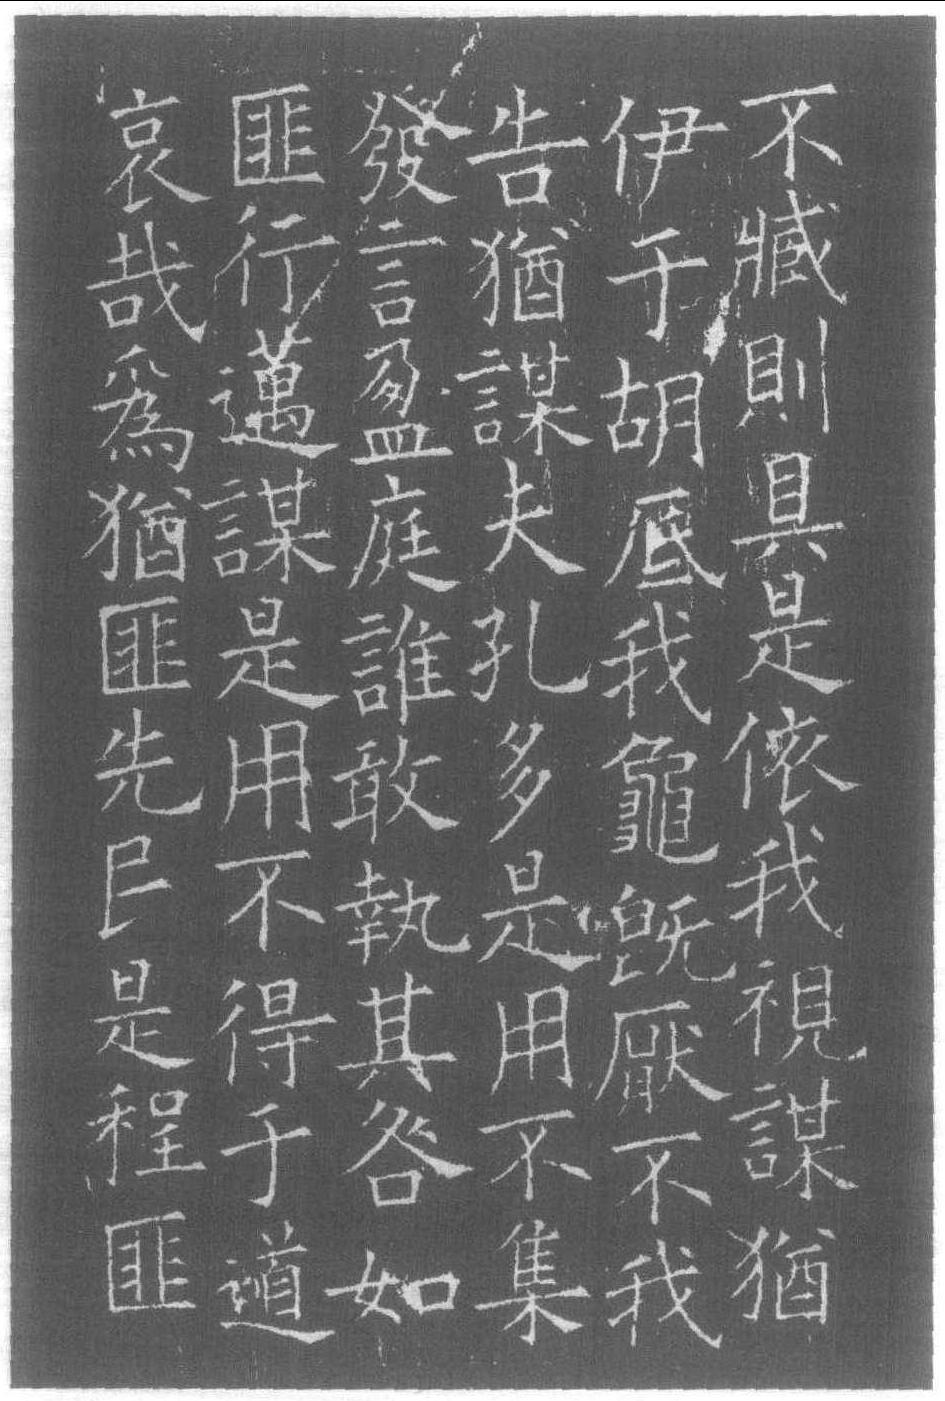 不臧則具是依我視謀猶
伊于胡厎我龜既厭不我
告猶謀夫孔多是用不集
發言盈庭誰敢執其咎如
匪行邁謀是用不得于道
哀哉爲猶匪先民是程匪